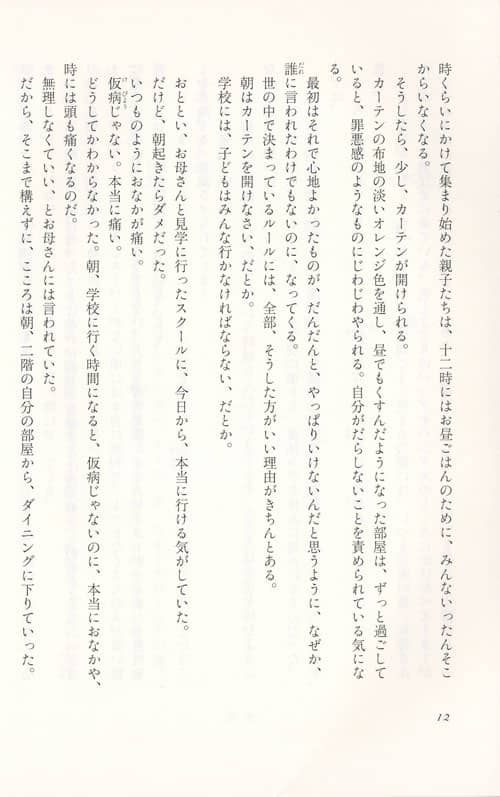 時くらいにかけて集まり始めた親子たちは、十二時にはお昼ごはんのために、みんないったんそこ
からいなくなる。
そうしたら、少し、カーテンが開けられる。
カーテンの布地の淡いオレンジ色を通し、昼でもくすんだようになった部屋は、ずっと過ごして
いると、罪悪感のようなものにじわじわやられる。自分がだらしないことを責められている気にな
る。
最初はそれで心地よかったものが、だんだんと、やっぱりいけないんだと思うように、なぜか、
誰に言われたわけでもないのに、なってくる。
世の中で決まっているルールには、全部、そうした方がいい理由がきちんとある。
朝はカーテンを開けなさい、だとか。
学校には、子どもはみんな行かなければならない、だとか。
おととい、お母さんと見学に行ったスクールに、今日から、本当に行ける気がしていた。
だけど、朝起きたらダメだった。
いつものようにおなかが痛い。
仮病じゃない。本当に痛い。
どうしてかわからなかった。朝、学校に行く時間になると、仮病じゃないのに、本当におなかや、
時には頭も痛くなるのだ。
無理しなくていい、とお母さんには言われていた。
だから、そこまで構えずに、こころは朝、二階の自分の部屋から、ダイニングに下りていった。
12